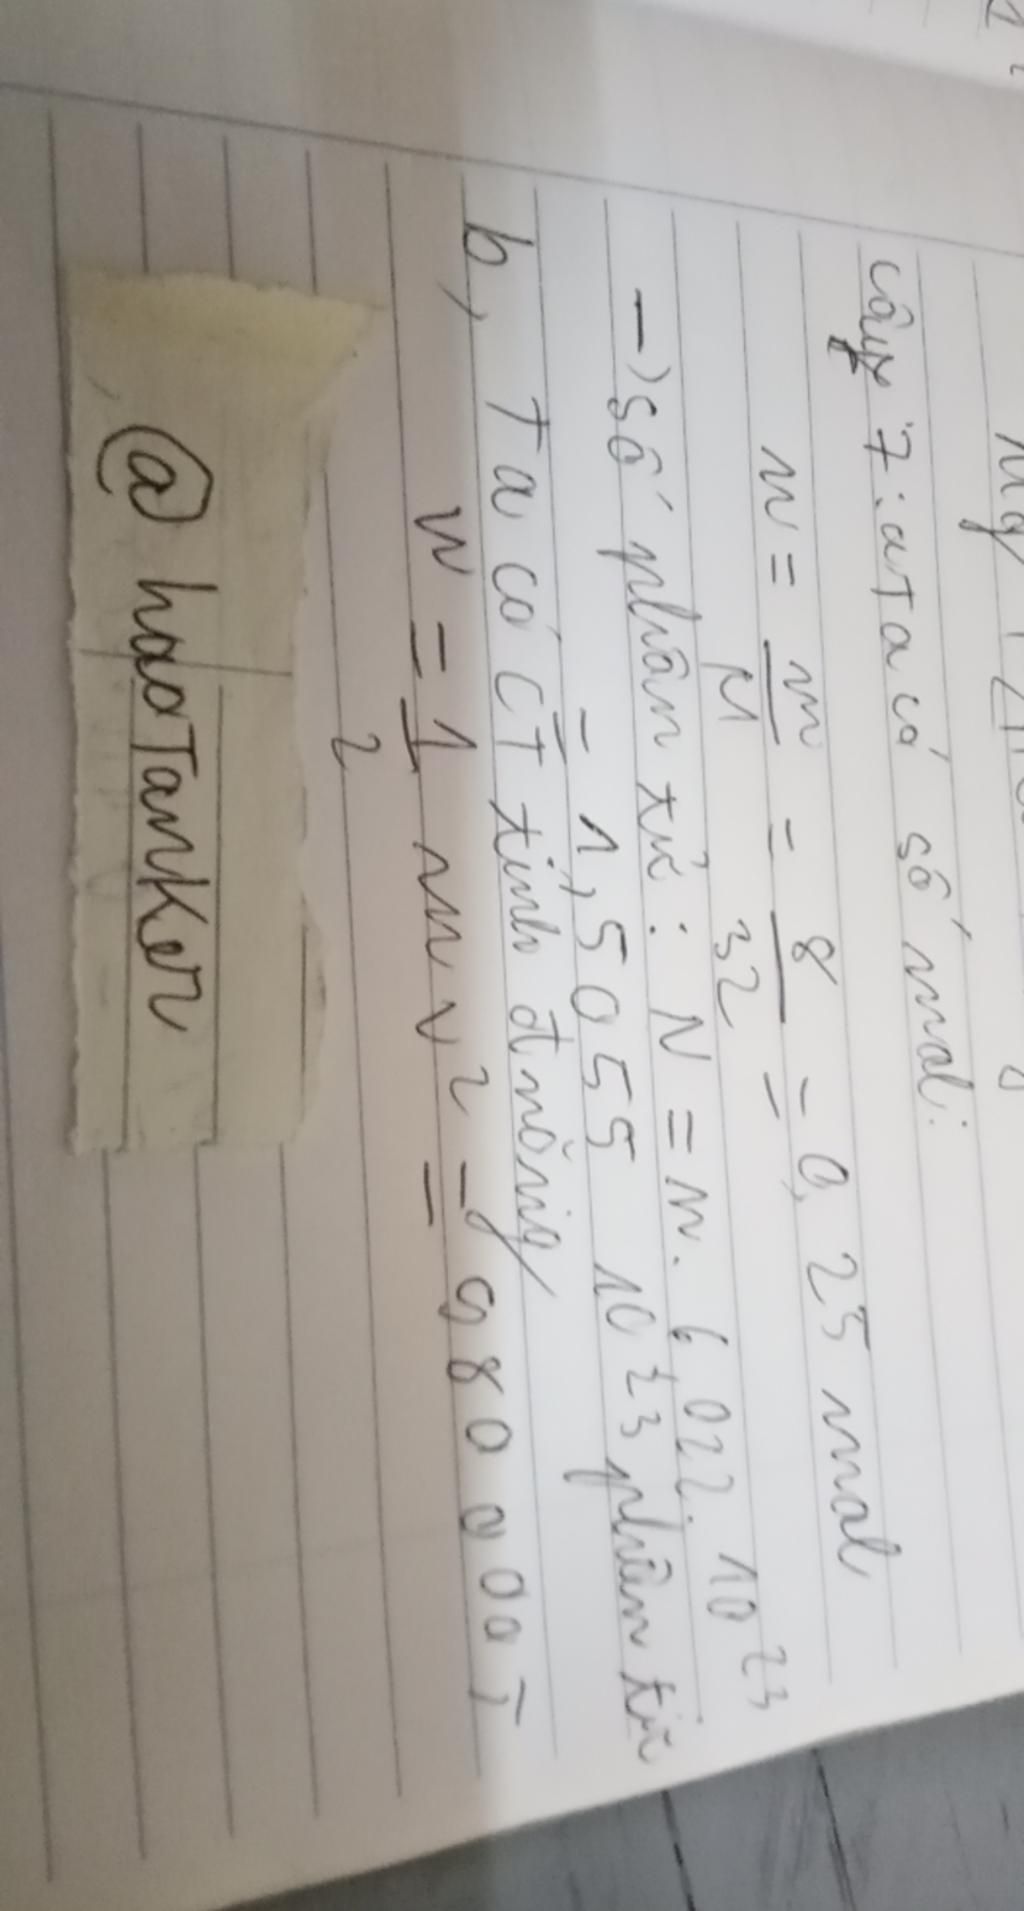 câu 7: a Ta có số mol:
n = m/M = 8/32 = 0,25 mol
→ số phân tử: N = n. 6,022. 10^23
= 1,5055 10^23 phân tử
b, Ta có CT tính động
W = 1/2 mv^2 = 980000J
@haoTanker